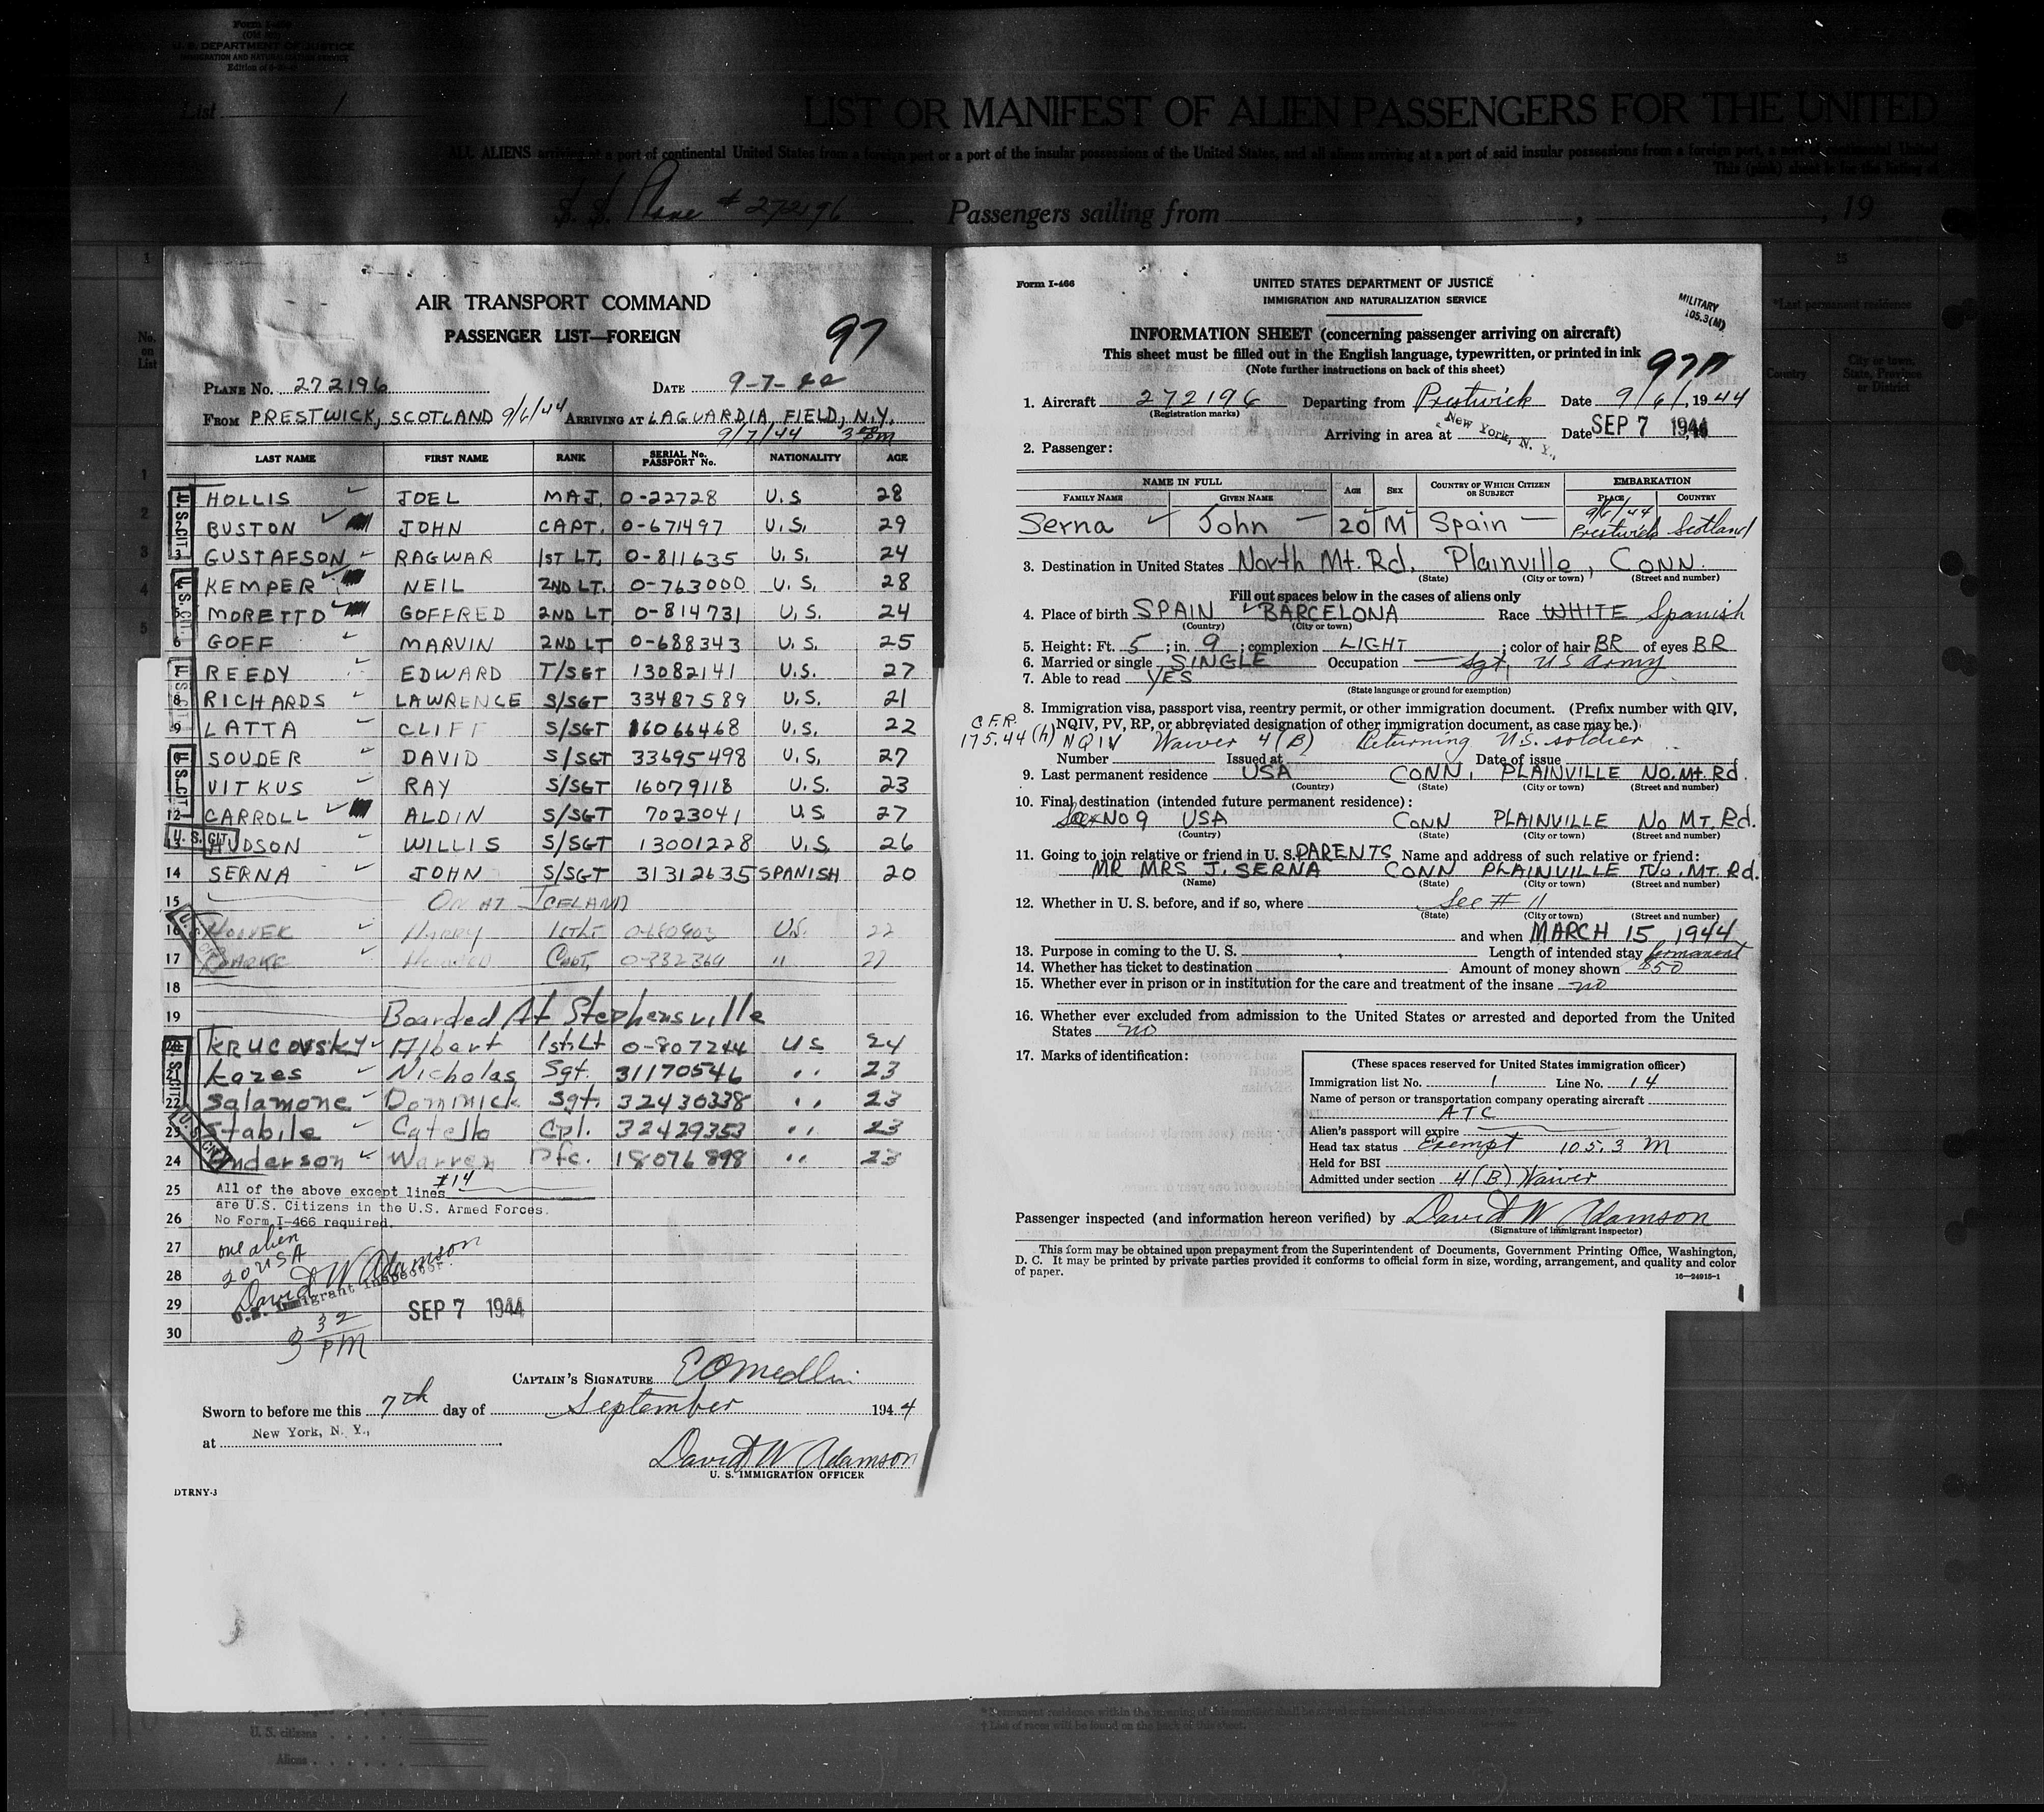 Form I-466
(Old 500)
U. S. DEPARTMENT OF JUSTICE
IMMIGRATION AND NATURALIZATION SERVICE
List 1
LIST OR MANIFEST OF ALIEN PASSENGERS FOR THE UNITED
ALL ALIENS arriving at a port of continental United States from a foreign port or a port of the insular possessions of the United States, and all aliens arriving at a port of said insular possessions from a foreign port, a port of continental United
This (pink) sheet is for the listing of
S. S. Plane # 272196 Passengers sailing from , , 19
No. on List
AIR TRANSPORT COMMAND
PASSENGER LIST—FOREIGN
97
PLANE No. 272196 DATE 9-7-44
FROM PRESTWICK, SCOTLAND 9/6/44 ARRIVING AT LAGUARDIA FIELD, N.Y.
9/7/44
LAST NAME FIRST NAME RANK SERIAL No. PASSPORT No. NATIONALITY AGE
1 HOLLIS JOEL MAJ. 0-22728 U.S 28
2 BUSTON JOHN CAPT. 0-671497 U.S. 29
3 GUSTAFSON RAGWAR 1ST LT. 0-811635 U.S. 24
4 KEMPER NEIL 2ND LT. 0-763000 U.S. 28
5 MORETTO GOFFRED 2ND LT 0-814731 U.S. 24
6 GOFF MARVIN 2ND LT 0-688343 U.S. 25
7 REEDY EDWARD T/SGT 13082141 U.S. 27
8 RICHARDS LAWRENCE S/SGT 33487589 U.S. 21
9 LATTA CLIFF S/SGT 16066468 U.S. 22
SOUDER DAVID S/SGT 33695498 U.S. 27
VITKUS RAY S/SGT 16079118 U.S. 23
12 CARROLL ALDIN S/SGT 7023041 U.S 27
13 HUDSON WILLIS S/SGT 13001228 U.S. 26
14 SERNA JOHN S/SGT 31312635 SPANISH 20
15 ON AT ICELAND
16 HOOVER HARRY 1st Lt U.S. 22
17 Capt. 0-332369 " 27
18
19 Boarded At Stephensville
20 KRUCOVSKY Albert 1st Lt 0-807244 US 24
21 Kazes Nicholas Sgt. 31170546 " 23
22 Salamone Dominick Sgt. 32430338 " 23
23 Stabile Catello Cpl. 32429353 " 23
24 Anderson Warren Pfc. 18076898 " 23
25 All of the above except lines #14
are U.S. Citizens in the U.S. Armed Forces.
26 No Form I-466 required.
27 one alien
20 USA
28 David W Adamson
U.S. Immigrant Inspector
29 SEP 7 1944
30 3 32 PM
CAPTAIN'S SIGNATURE E O Medlin
Sworn to before me this 7th day of September 1944
at New York, N. Y.,
David W Adamson
U. S. IMMIGRATION OFFICER
DTRNY-3
Form I-466
UNITED STATES DEPARTMENT OF JUSTICE
IMMIGRATION AND NATURALIZATION SERVICE
MILITARY
105.3(M)
INFORMATION SHEET (concerning passenger arriving on aircraft)
This sheet must be filled out in the English language, typewritten, or printed in ink
(Note further instructions on back of this sheet)
1. Aircraft 272196 Departing from Prestwick Date 9/6/, 1944
(Registration marks)
Arriving in area at New York, N. Y., Date SEP 7 1944
2. Passenger:
NAME IN FULL AGE SEX COUNTRY OF WHICH CITIZEN OR SUBJECT EMBARKATION
FAMILY NAME GIVEN NAME PLACE COUNTRY
Serna John 20 M Spain 9/6/44 Prestwick Scotland
3. Destination in United States North Mt. Rd. Plainville, CONN.
(State) (City or town) (Street and number)
Fill out spaces below in the cases of aliens only
4. Place of birth SPAIN BARCELONA Race WHITE Spanish
(Country) (City or town)
5. Height: Ft. 5; in. 9; complexion LIGHT; color of hair BR of eyes BR
6. Married or single SINGLE Occupation Sgt, US Army
7. Able to read YES
(State language or ground for exemption)
8. Immigration visa, passport visa, reentry permit, or other immigration document. (Prefix number with QIV,
NQIV, PV, RP, or abbreviated designation of other immigration document, as case may be.)
C.F.R. 175.44 (h) NQIV Waiver 4(B) Returning U.S. soldier
Number Issued at Date of issue
9. Last permanent residence USA CONN, PLAINVILLE NO. Mt. Rd.
(Country) (State) (City or town) (Street and number)
10. Final destination (intended future permanent residence):
See No 9 USA CONN PLAINVILLE No MT. Rd.
(Country) (State) (City or town) (Street and number)
11. Going to join relative or friend in U. S. PARENTS Name and address of such relative or friend:
MR MRS J. SERNA CONN PLAINVILLE No. MT. Rd.
(Name) (State) (City or town) (Street and number)
12. Whether in U. S. before, and if so, where See # 11
(State) (City or town) (Street and number)
and when MARCH 15, 1944
13. Purpose in coming to the U. S. Length of intended stay permanent
14. Whether has ticket to destination Amount of money shown $50
15. Whether ever in prison or in institution for the care and treatment of the insane no
16. Whether ever excluded from admission to the United States or arrested and deported from the United
States no
17. Marks of identification:
(These spaces reserved for United States immigration officer)
Immigration list No. 1 Line No. 14
Name of person or transportation company operating aircraft
ATC
Alien's passport will expire
Head tax status Exempt 105.3 M
Held for BSI
Admitted under section 4(B) Waiver
Passenger inspected (and information hereon verified) by David W Adamson
(Signature of immigrant inspector)
This form may be obtained upon prepayment from the Superintendent of Documents, Government Printing Office, Washington,
D. C. It may be printed by private parties provided it conforms to official form in size, wording, arrangement, and quality and color
of paper.
16—24915-1
U. S. citizens
Aliens
† List of races will be found on the back of this sheet.